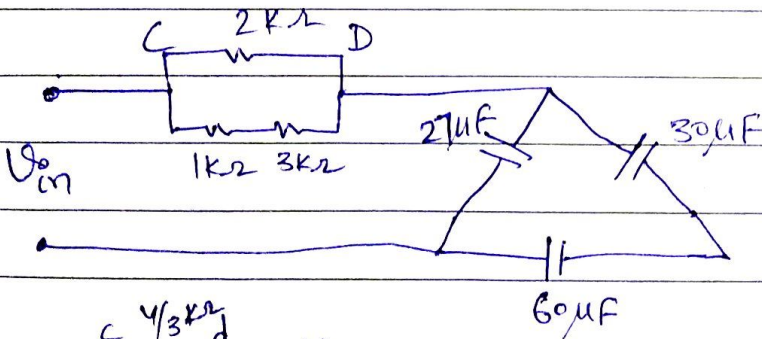 2KΩ
C D
27µF 30µF
Vin 1KΩ 3KΩ
60µF
C 4/3 KΩ d